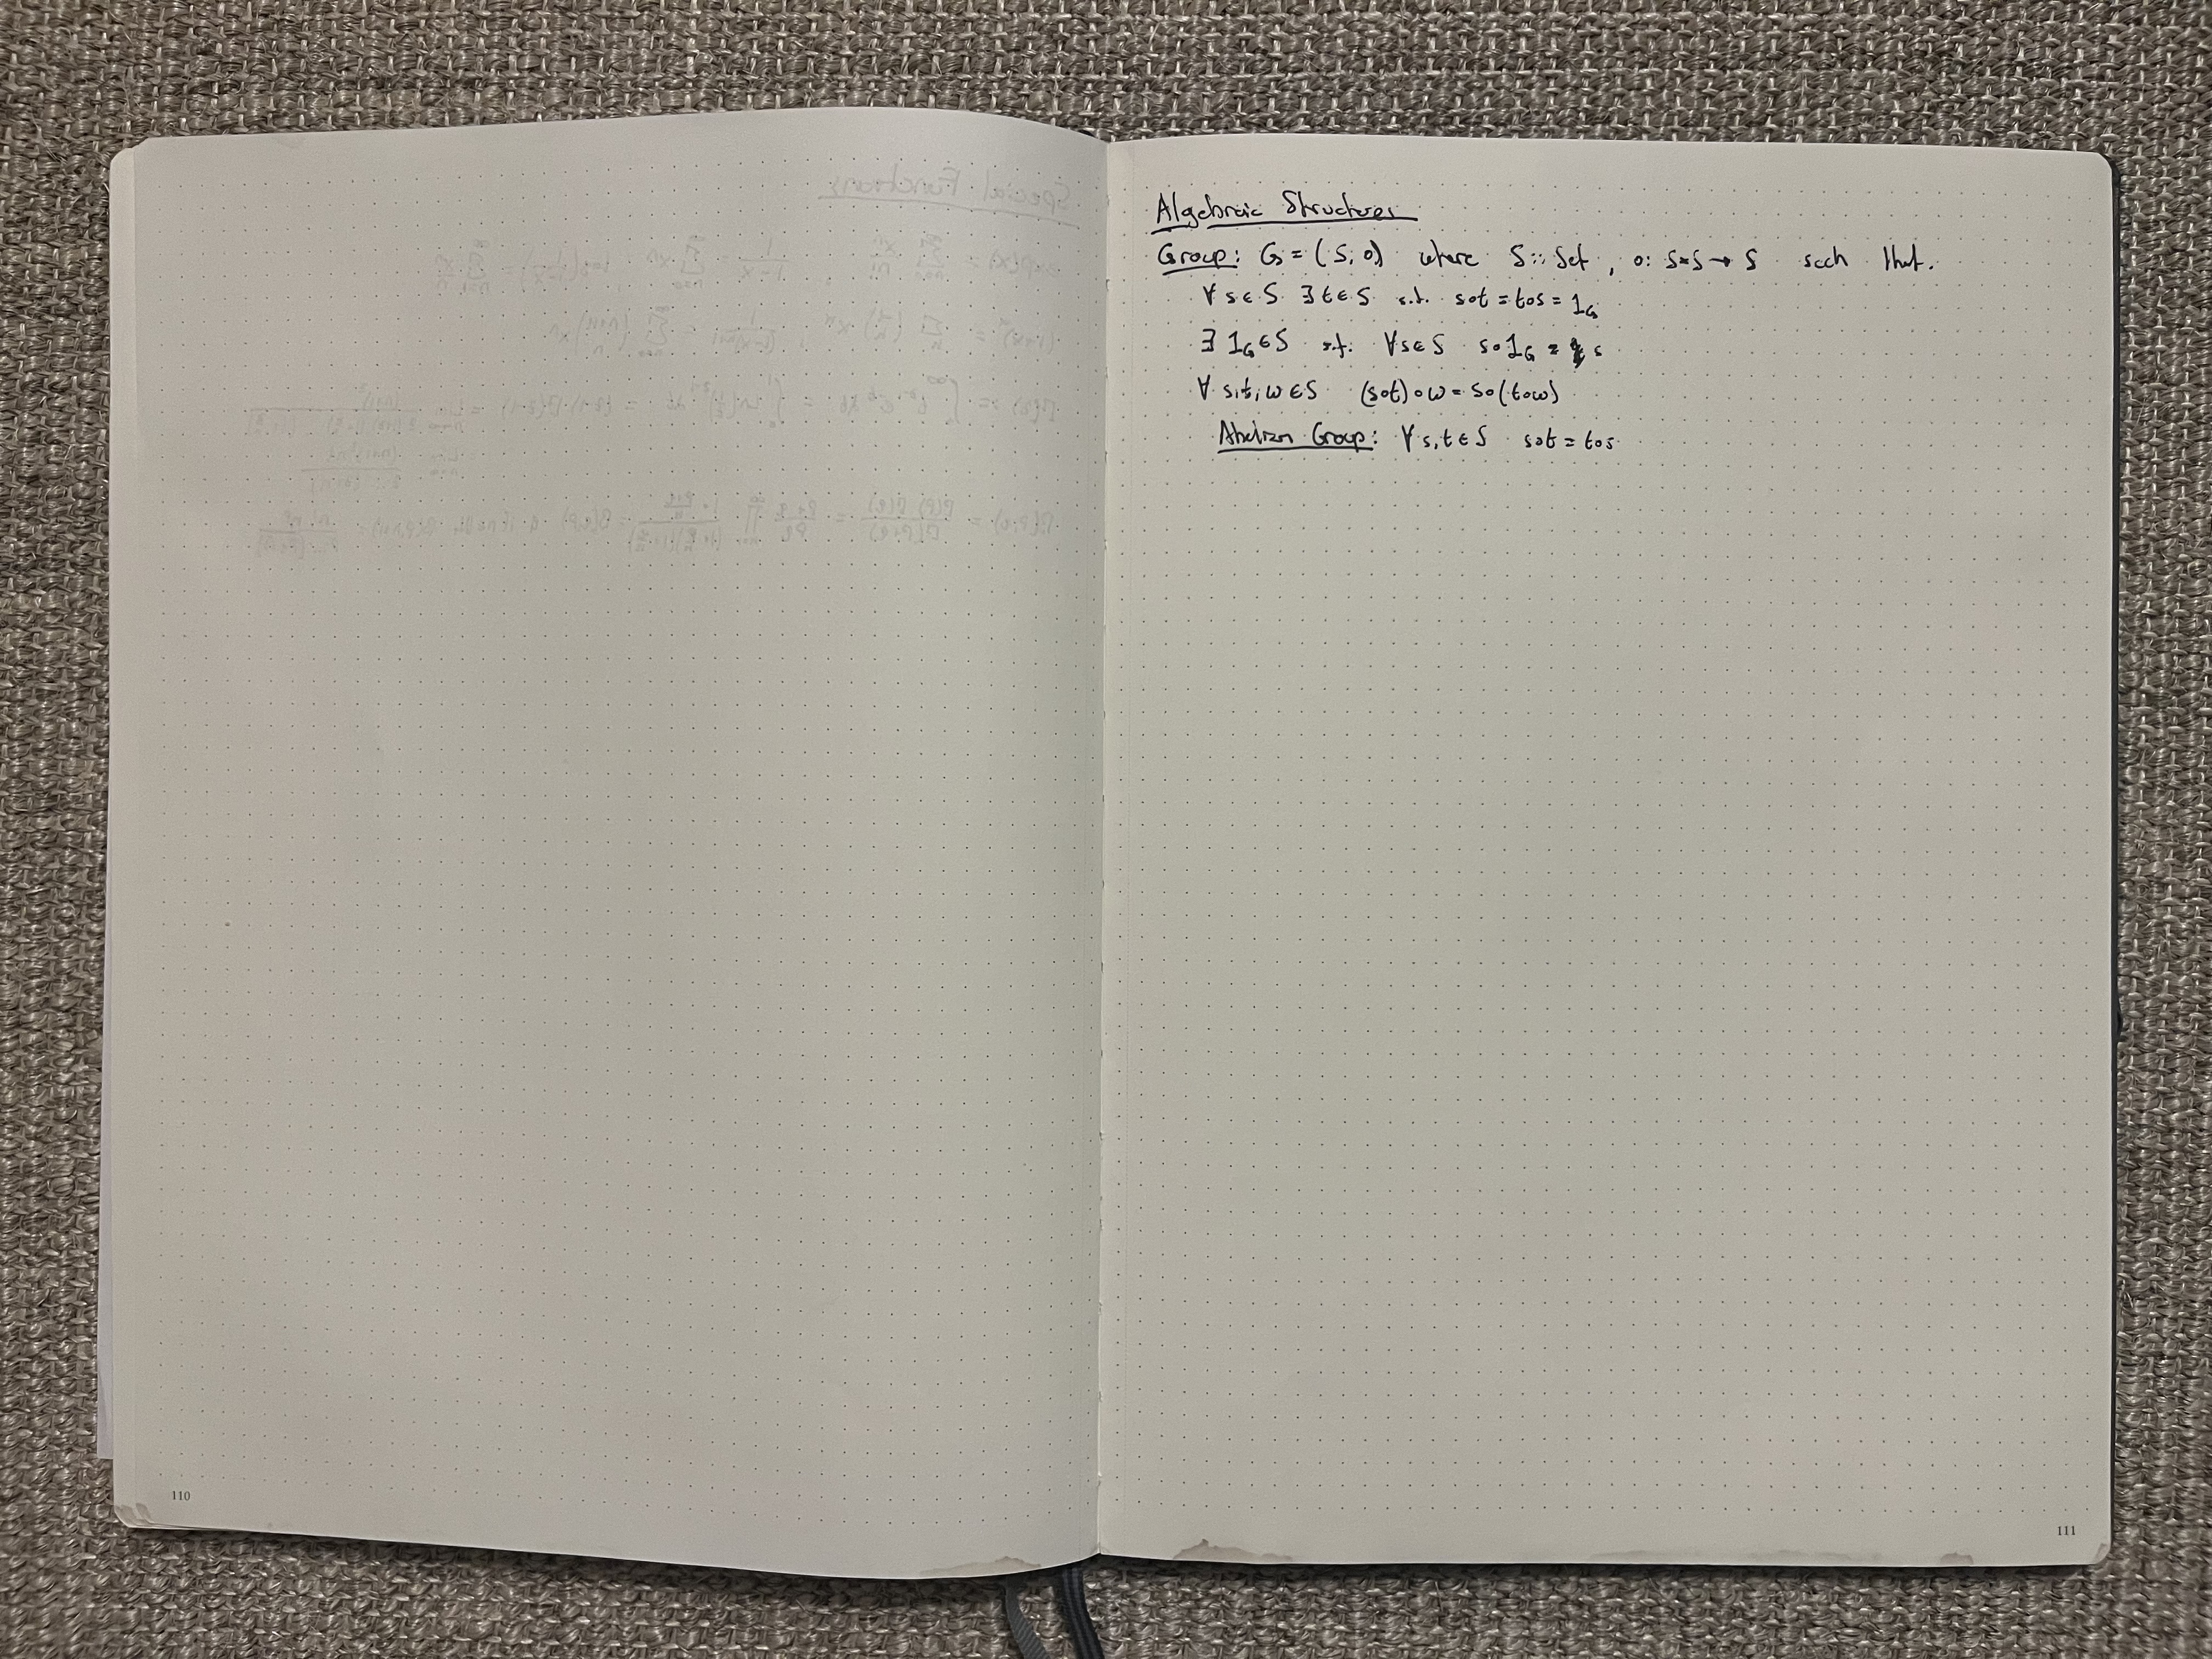 110
Algebraic Structures
Group: G = (S, o) where S :: Set, o: S×S → S such that.
∀s∈S ∃t∈S s.t. sot = tos = 1_G
∃ 1_G ∈ S s.t. ∀s∈S so1_G = s
∀ s,t,w ∈ S (sot)ow = so(tow)
Abelian Group: ∀s,t ∈ S sot = tos
111